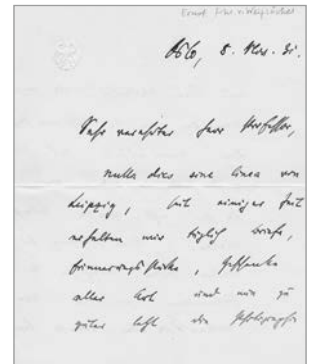 Ernst Frhr. v. Weizsäcker
Oslo, 8. Nov. 31.
Sehr verehrter Herr Professor,
nulla dies sine linea von
Leipzig, seit einiger Zeit
erhalten wir täglich Briefe,
Geschenke
aller Art und nun zu
guter Letzt die